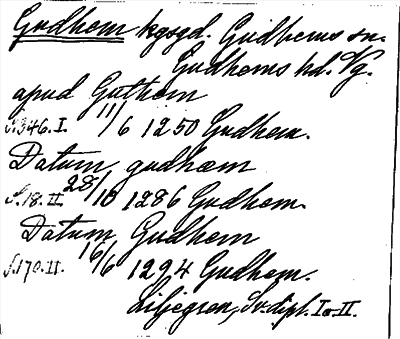 Gudhem kgsgd. Gudhems sn.
Gudhems hd. Vg.
apud Guthem
S.346.I. 11/6 1250 Gudhem.
Datum gudhæm
S.18.II. 28/10 1286 Gudhem.
Datum Gudhem
S.170.II. 16/6 1294 Gudhem.
Liljegren, Sv. dipl. I o. II.